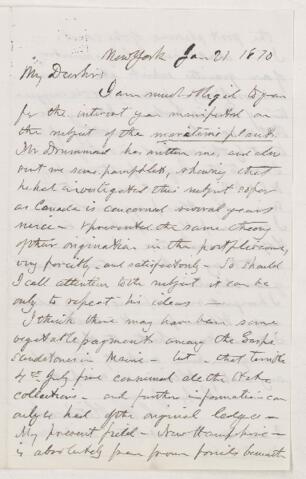 New York Jan 21. 1870
My Dear Sir:
I am much obliged to you
for the interest you manifested on
the subject of the maritime plants.
Mr Drummond has written me, and also
sent me some pamphlets, showing that
he had investigated this subject so far
as Canada is concerned several years
since & presented the same theory
of their origination in the post pliocene,
very forcibly and satisfactorily — So should
I call attention to the subject it can be
only to repeat his ideas —
I think there may have been some
vegetable fragments among the Gaspé
Sandstones in Maine — but — that terrible
4th July fire consumed all the
collections — and further information can
only be had of the original ledges —
My present field — New Hampshire —
is absolutely free from fossils beneath